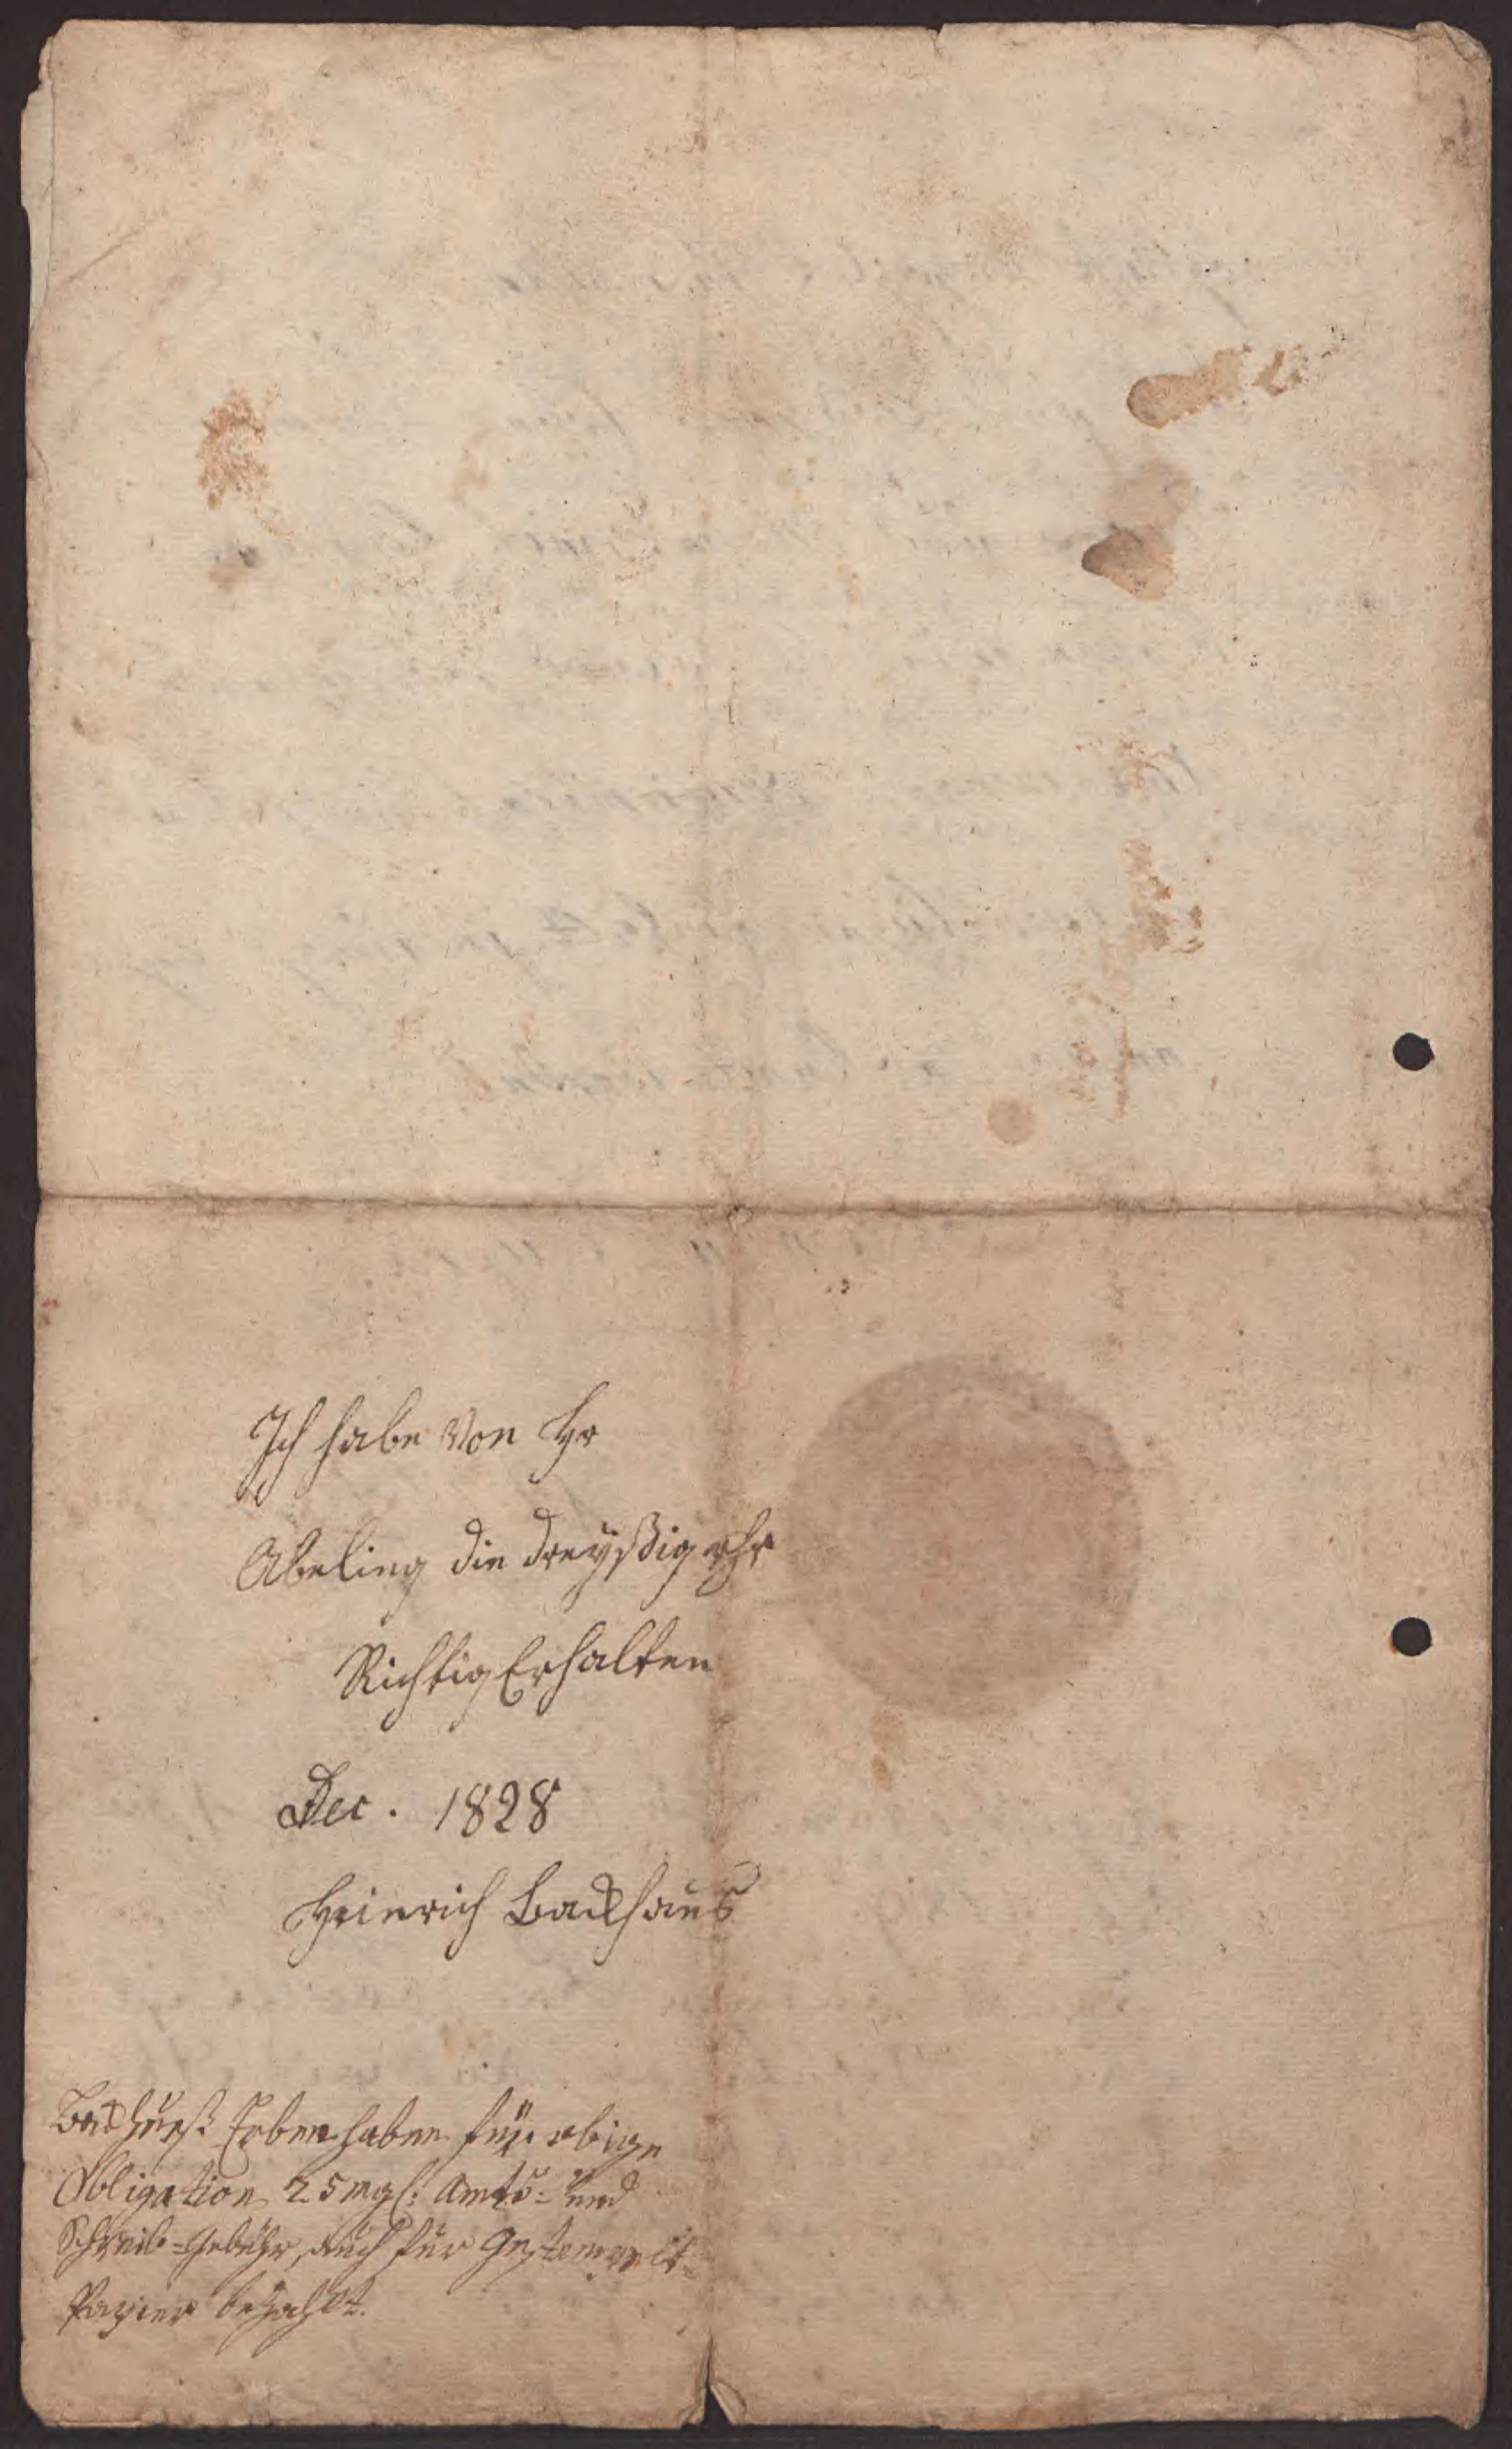 Ich habe Von Hr
Abeling die dreyßig rthr
Richtig Erhalten
Dec. 1828
Heinrich Backhaus
Erben haben für obige
Obligation 25 mgl: Amts- und
Schreib-Gebühr, auch für Gestempelt-
Papier bezahlt.